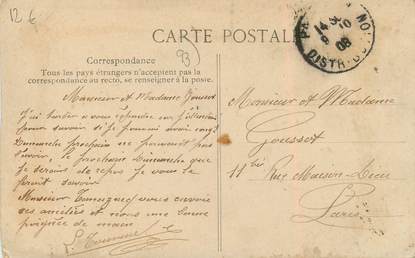 12 €
CARTE POSTALE
93)
14 30
10
9
08
DISTRIB
Correspondance
Tous les pays étrangers n'acceptent pas la
correspondance au recto, se renseigner à la poste.
Monsieur et Madame Goussot
J'ai tardé a vous répondre en
pour savoir si je pouvais avoir mon
Dimanche prochain ne pouvant pas
l'avoir, le prochain Dimanche que
je serais de repos je vous le
ferait savoir
Monsieur vous envoie
ses amitiés et nous une bonne
poignée de main
Monsieur et Madame
Goussot
11 bis Rue Maison-Dieu
Paris